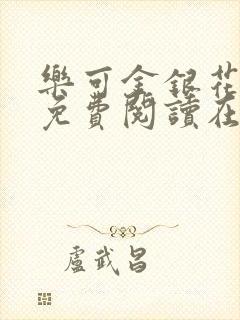 樂可金銀花
免費閱讀在
盧武昌